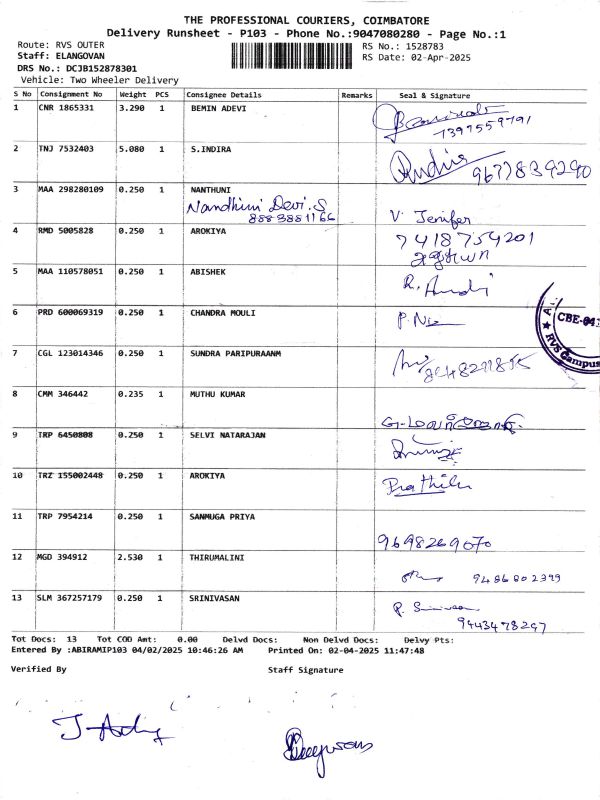 THE PROFESSIONAL COURIERS, COIMBATORE
Delivery Runsheet - P103 - Phone No.:9047080280 - Page No.:1
Route: RVS OUTER RS No.: 1528783
Staff: ELANGOVAN RS Date: 02-Apr-2025
DRS No.: DCJB152878301
Vehicle: Two Wheeler Delivery
S No Consignment No Weight PCS Consignee Details Remarks Seal & Signature
1 CNR 1865331 3.290 1 BEMIN ADEVI
7397559791
2 TNJ 7532403 5.080 1 S.INDIRA
Indira 9677839290
3 MAA 298280109 0.250 1 NANTHUNI
Nandhini Devi.S
8883881166
V. Jenifer
4 RMD 5005828 0.250 1 AROKIYA
7418754201
5 MAA 110578051 0.250 1 ABISHEK
R.
6 PRD 600069319 0.250 1 CHANDRA MOULI
P.
CBE-641
RVS Campus
7 CGL 123014346 0.250 1 SUNDRA PARIPURAANM
8 CMM 346442 0.235 1 MUTHU KUMAR
9 TRP 6450808 0.250 1 SELVI NATARAJAN
10 TRZ 155002448 0.250 1 AROKIYA
11 TRP 7954214 0.250 1 SANMUGA PRIYA
9698269070
12 MGD 394912 2.530 1 THIRUMALINI
9486802399
13 SLM 367257179 0.250 1 SRINIVASAN
9443478247
Tot Docs: 13 Tot COD Amt: 0.00 Delvd Docs: Non Delvd Docs: Delvy Pts:
Entered By :ABIRAMIP103 04/02/2025 10:46:26 AM Printed On: 02-04-2025 11:47:48
Verified By Staff Signature